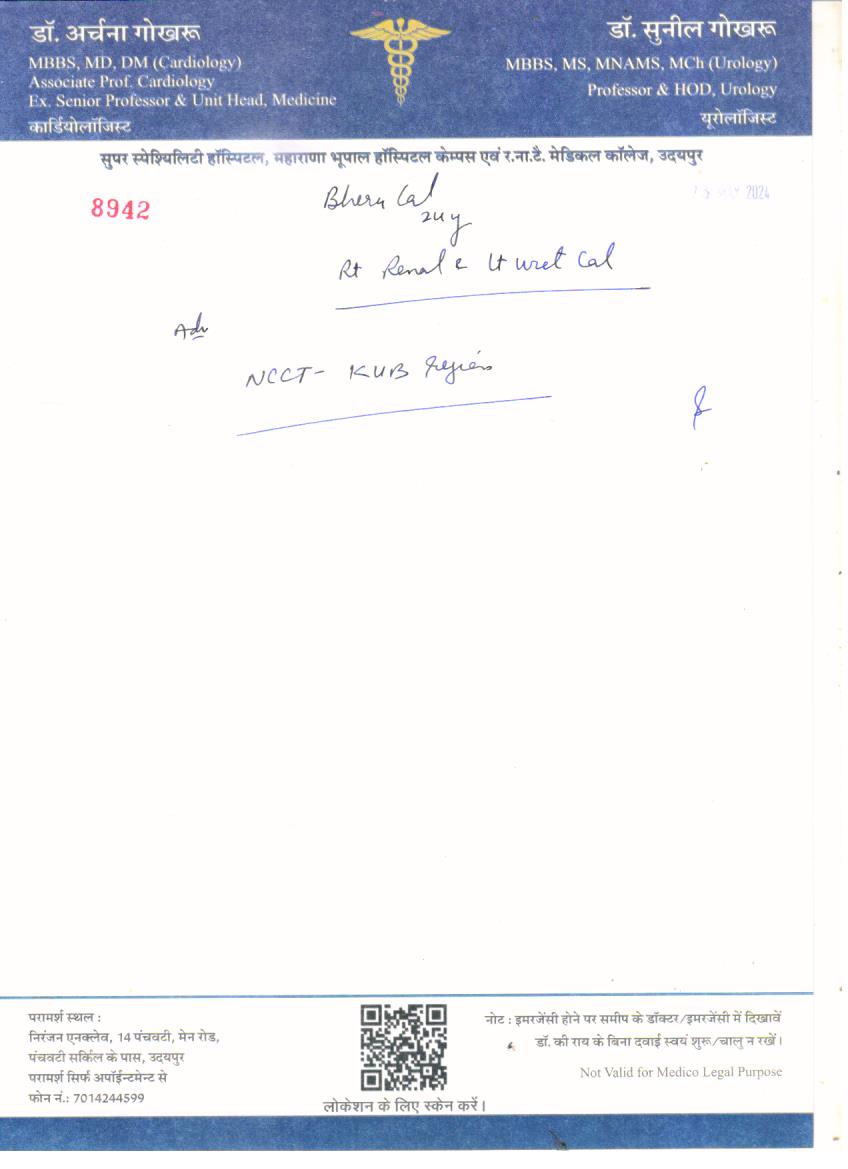 डॉ. अर्चना गोखरू
MBBS, MD, DM (Cardiology)
Associate Prof. Cardiology
Ex. Senior Professor & Unit Head, Medicine
कार्डियोलॉजिस्ट
डॉ. सुनील गोखरू
MBBS, MS, MNAMS, MCh (Urology)
Professor & HOD, Urology
यूरोलॉजिस्ट
सुपर स्पेश्यिलिटी हॉस्पिटल, महाराणा भूपाल हॉस्पिटल केम्पस एवं र.ना.टै. मेडिकल कॉलेज, उदयपुर
8942
MAY 2024
Bheru Lal
24 y
Rt Renal c Lt uret Cal
Adv
NCCT- KUB Region
परामर्श स्थल :
निरंजन एनक्लेव, 14 पंचवटी, मेन रोड,
पंचवटी सर्किल के पास, उदयपुर
परामर्श सिर्फ अपॉईन्टमेन्ट से
फोन नं.: 7014244599
लोकेशन के लिए स्केन करें।
नोट : इमरजेंसी होने पर समीप के डॉक्टर/इमरजेंसी में दिखावें
डॉ. की राय के बिना दवाई स्वयं शुरू/चालु न रखें।
Not Valid for Medico Legal Purpose